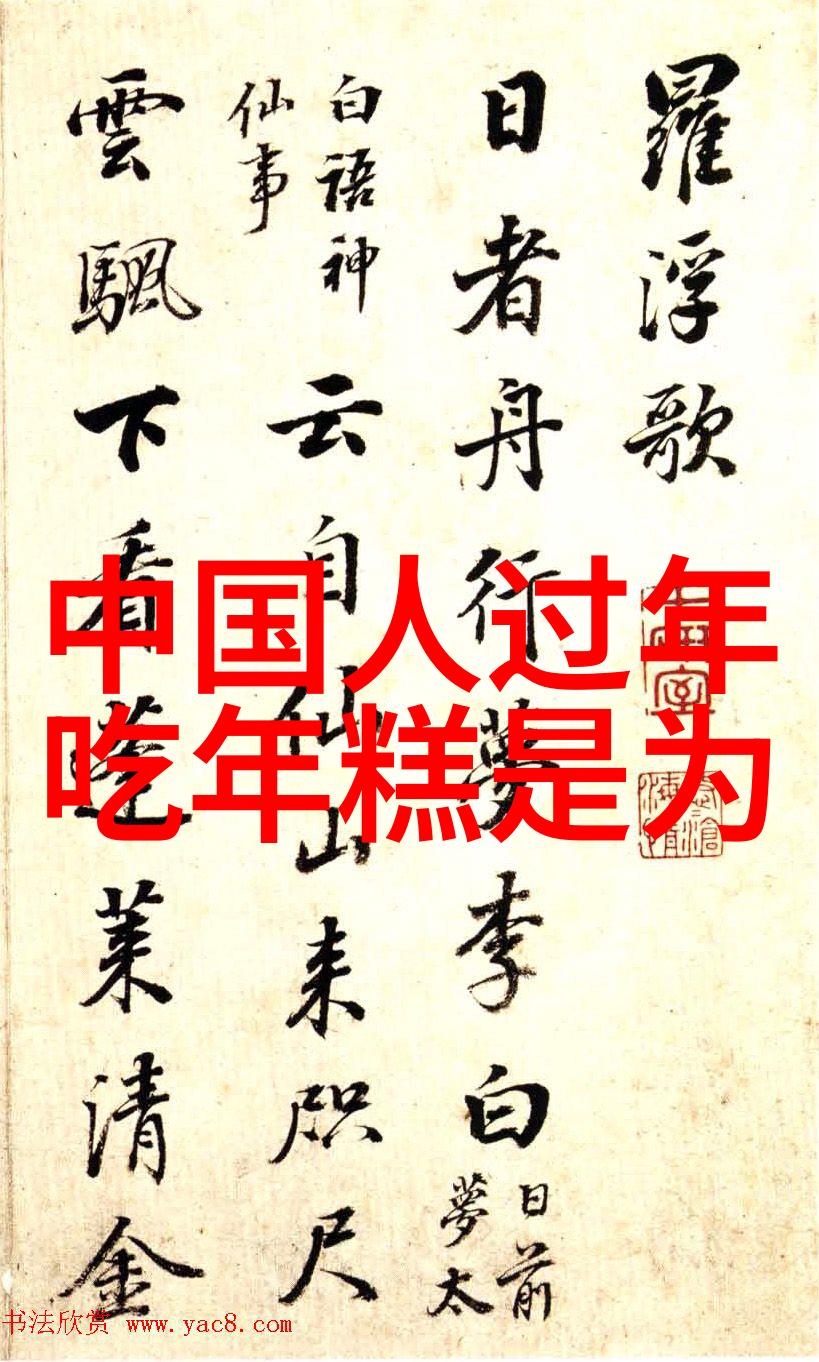 羅浮歌
日者舟行夢李白
日前
夢太
白語神
仙事
云自仙山来咫尺
雲䭵下看蓬莱清金
中国人过年
吃年糕是为
书法欣赏 www.yac8.com